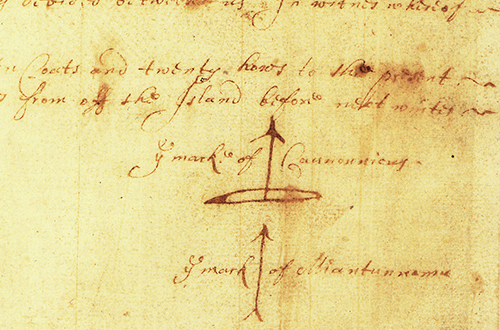 devided betweene us In witnes whereof
Coats and twenty howes to the present
from of the Island before next winter
ye marke of Caunnonicus
ye mark of Miantunnomu